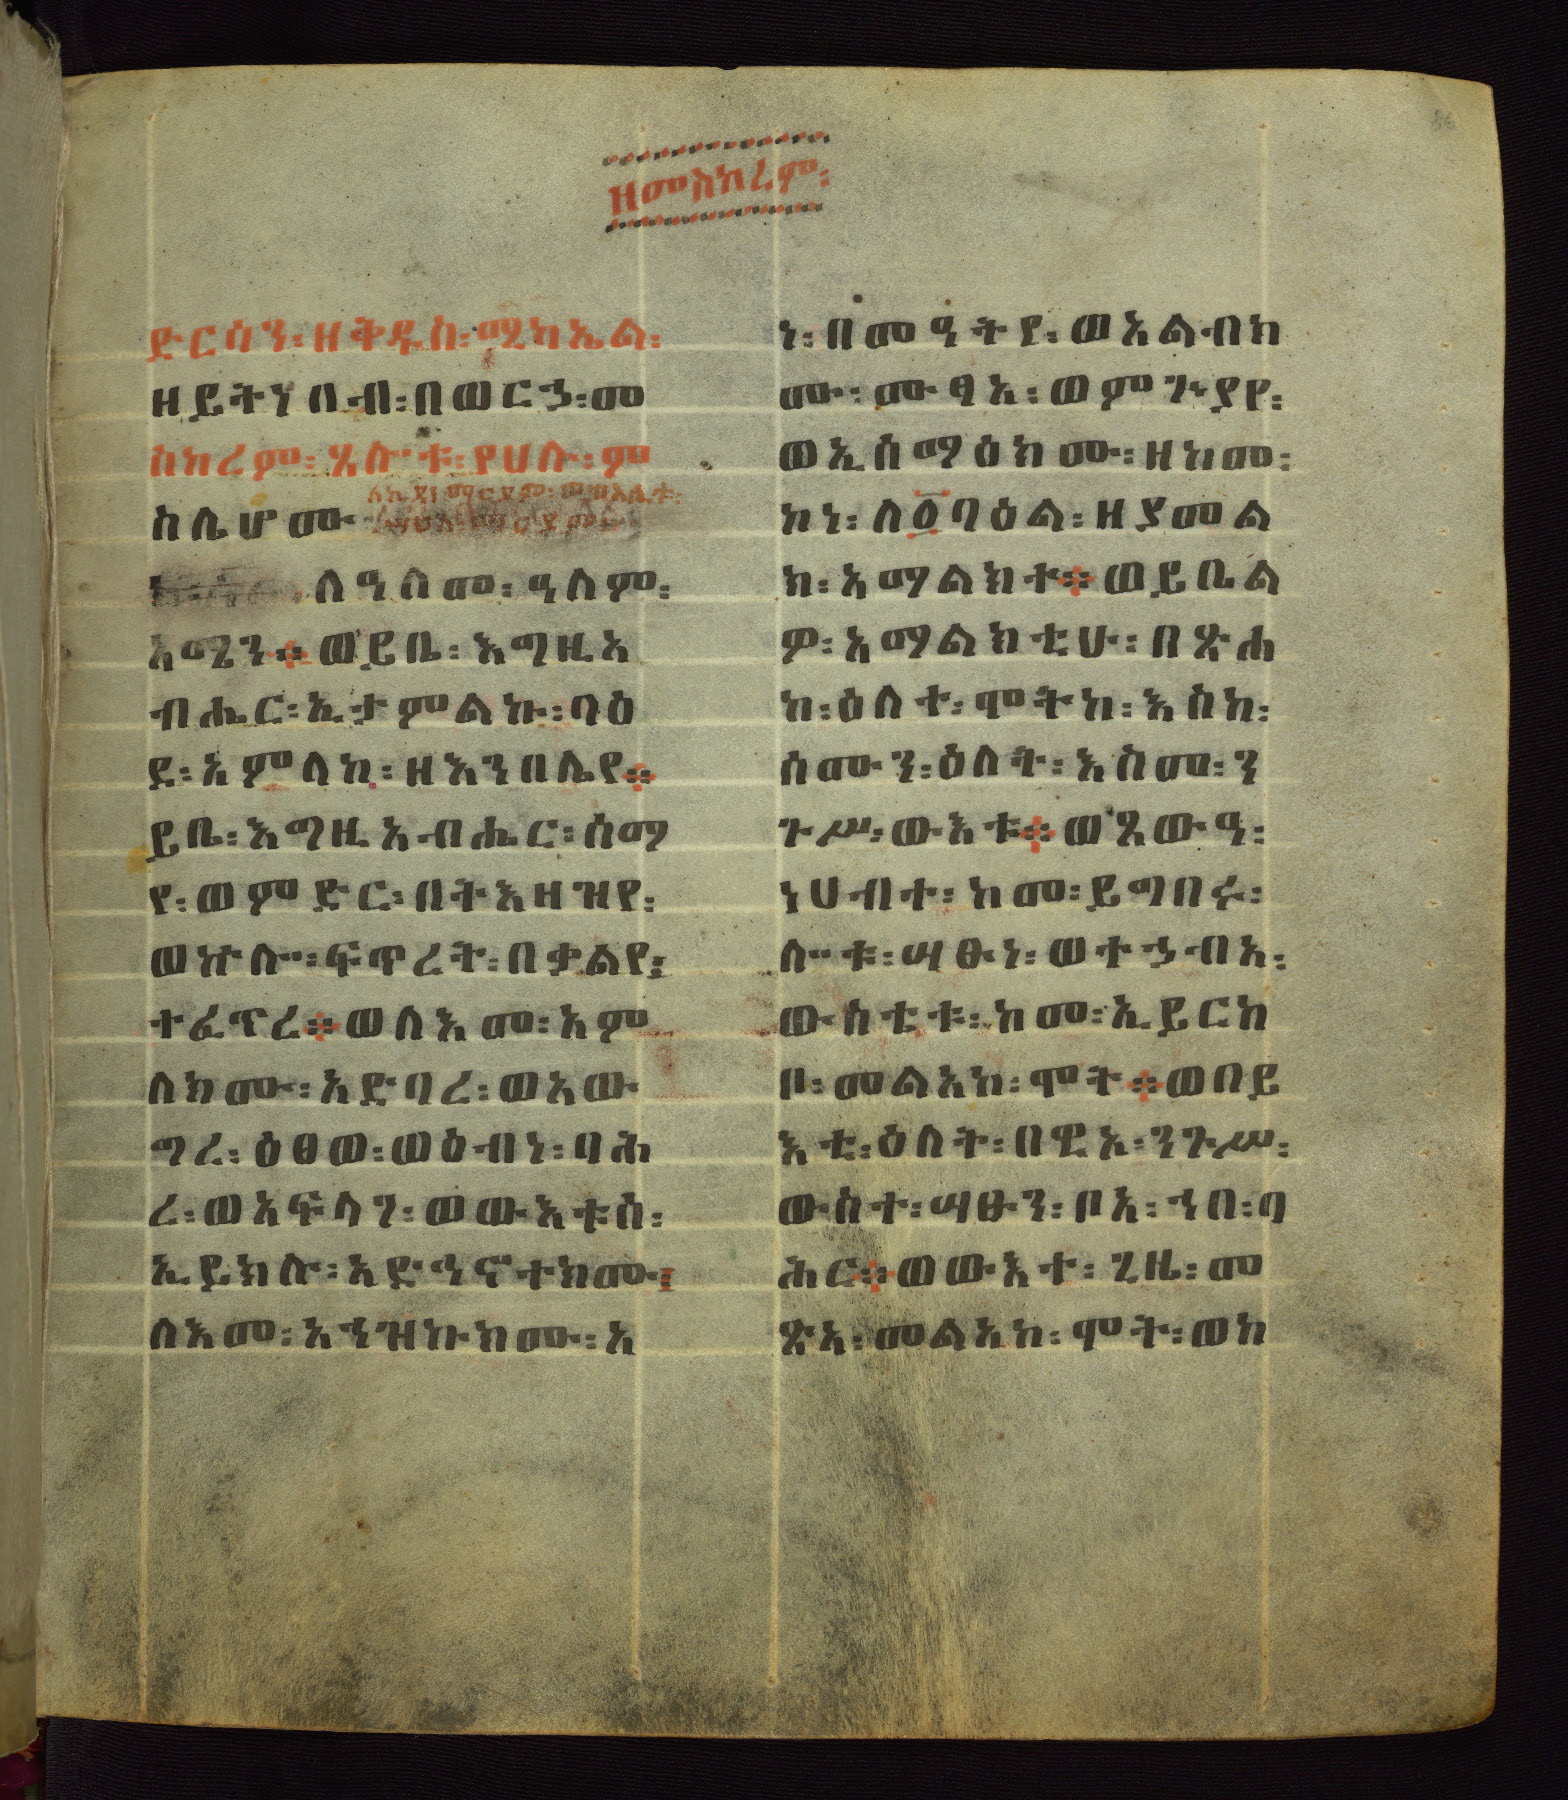 ዘመስከረም፡
ድርሳን፡ ዘቅዱስ፡ ሚካኤል፡
ዘይትነበብ፡ በወርኃ፡ መ
ስከረም፡ ጸሎቱ፡ የሀሉ፡ ምስ
ስሌሆሙ
ለዓለመ፡ ዓለም፡
አሜን። ወይቤ፡ እግዚአ
ብሔር፡ ኢታምልኩ፡ ባዕ
ደ፡ አምላከ፡ ዘእንበሌየ።
ይቤ፡ እግዚአብሔር፡ ሰማ
የ፡ ወምድር፡ በትእዛዝየ፡
ወኵሉ፡ ፍጥረት፡ በቃልየ፡
ተፈጥረ። ወለእመ፡ አም
ለክሙ፡ አድባረ፡ ወአው
ግረ፡ ዕፀወ፡ ወዕብነ፡ ባሕ
ረ፡ ወአፍላገ፡ ወውእቱሰ፡
ኢይክሉ፡ አድኅኖተክሙ፡
ለእመ፡ አኀዝኩክሙ፡ አ
ነ፡ በመዓትየ፡ ወአልብክ
ሙ፡ ሙፃአ፡ ወምጕያየ፡
ወኢሰማዕክሙ፡ ዘከመ፡
ኮነ፡ ለ፩ባዕል፡ ዘያመል
ክ፡ አማልክተ። ወይቤል
ዎ፡ አማልክቲሁ፡ በጽሐ
ከ፡ ዕለተ፡ ሞትከ፡ እስከ፡
ሰሙን፡ ዕለት፡ እስመ፡ ን
ጉሥ፡ ውእቱ። ወጸውዓ፡
ነሀብተ፡ ከመ፡ ይግበሩ፡
ሎቱ፡ ሣፁነ፡ ወተኃብአ፡
ውስቴቱ፡ ከመ፡ ኢይርከ
ቦ፡ መልአከ፡ ሞት። ወበይ
እቲ፡ ዕለት፡ በዊአ፡ ንጉሥ፡
ውስተ፡ ሣፁን፡ ቦአ፡ ኀበ፡ ባ
ሕር። ወውእተ፡ ጊዜ፡ መ
ጽአ፡ መልአከ፡ ሞት፡ ወከ